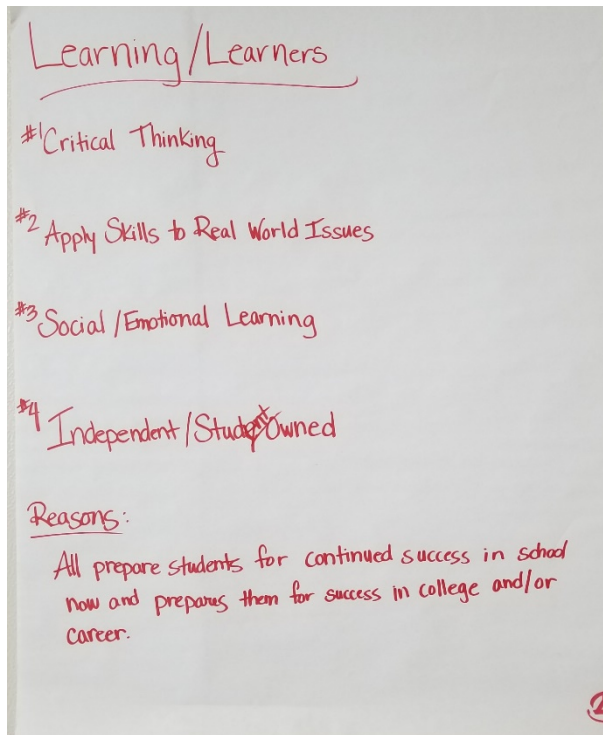 Learning/Learners
#1 Critical Thinking
#2 Apply Skills to Real World Issues
#3 Social/Emotional Learning
#4 Independent/Student Owned
Reasons:
All prepare students for continued success in school
now and prepares them for success in college and/or
career.